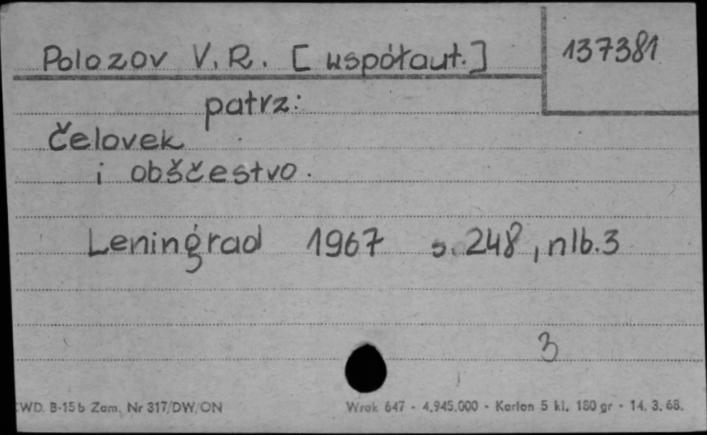 Polozov V.R. [współaut.] 137381
patrz:
Čelovek
i obščestvo.
Leningrad 1967 s. 248, nlb. 3
3
WD. B-15b Zam. Nr 317/DW/ON Wrok 647 - 4.945.000 - Karton 5 kl. 180 gr - 14. 3. 68.